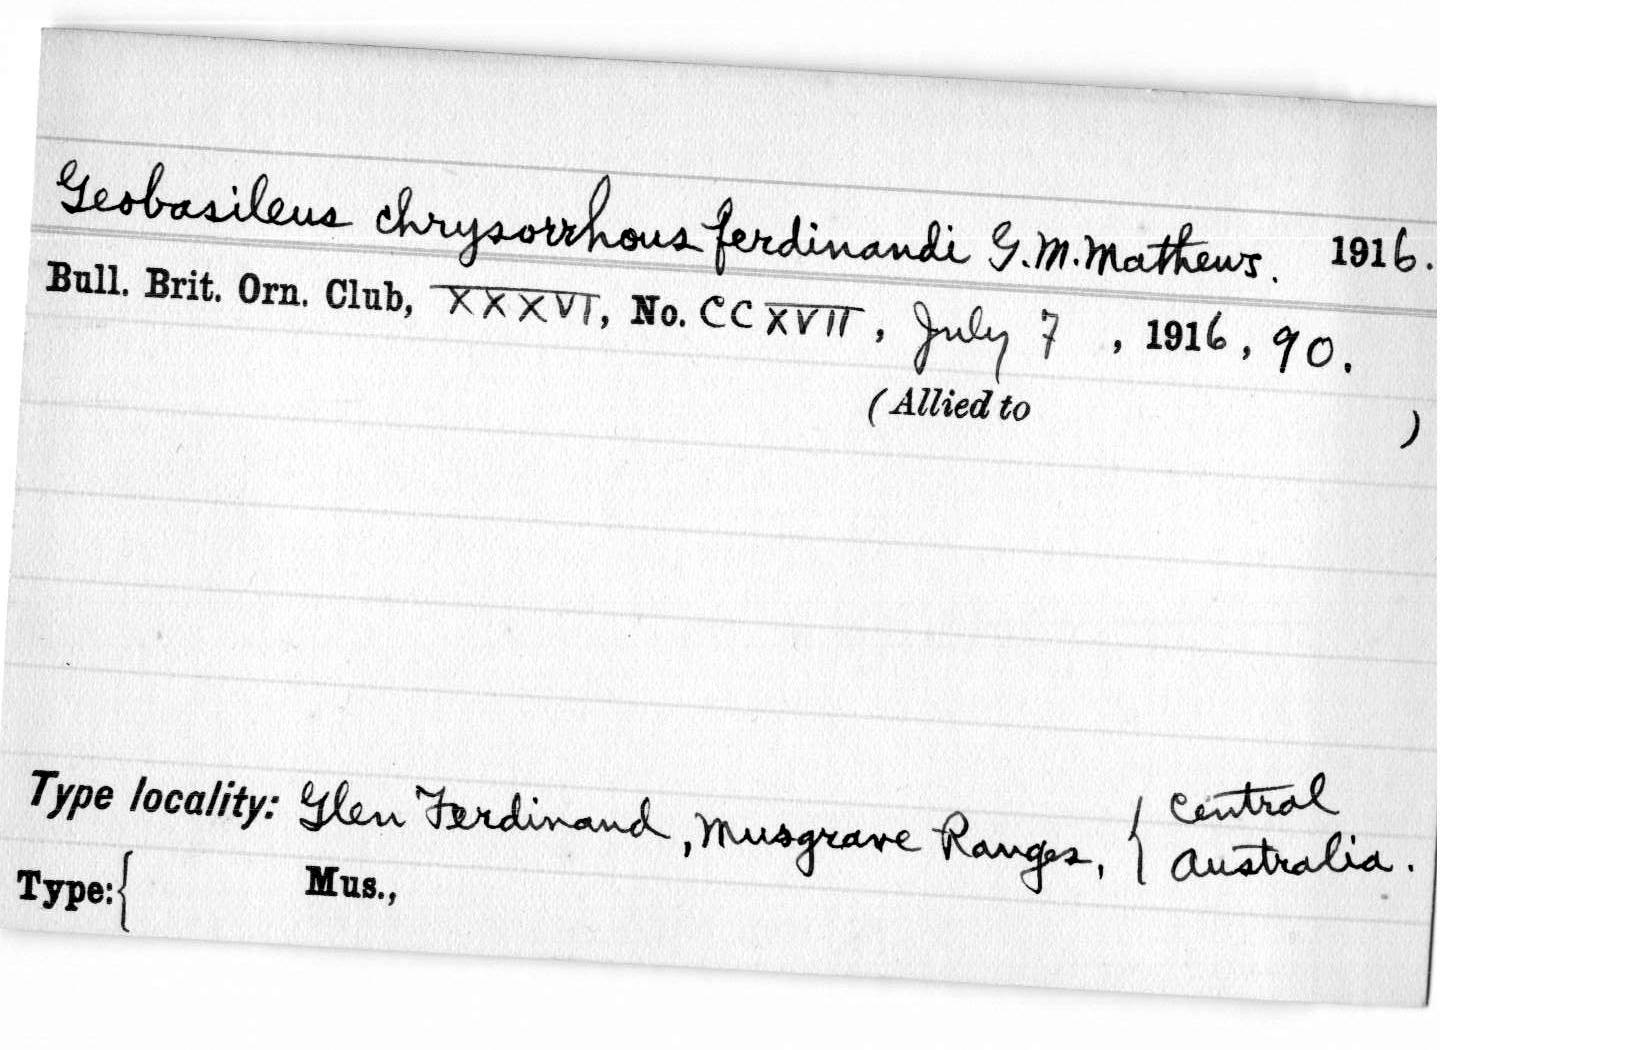 Geobasileus chrysorrhous ferdinandi G.M.Mathews. 1916.
Bull. Brit. Orn. Club, XXXVI, No. CCXVII, July 7, 1916, 90.
(Allied to )
Type locality: Glen Ferdinand, Musgrave Ranges, { Central
Australia.
Type: { Mus.,